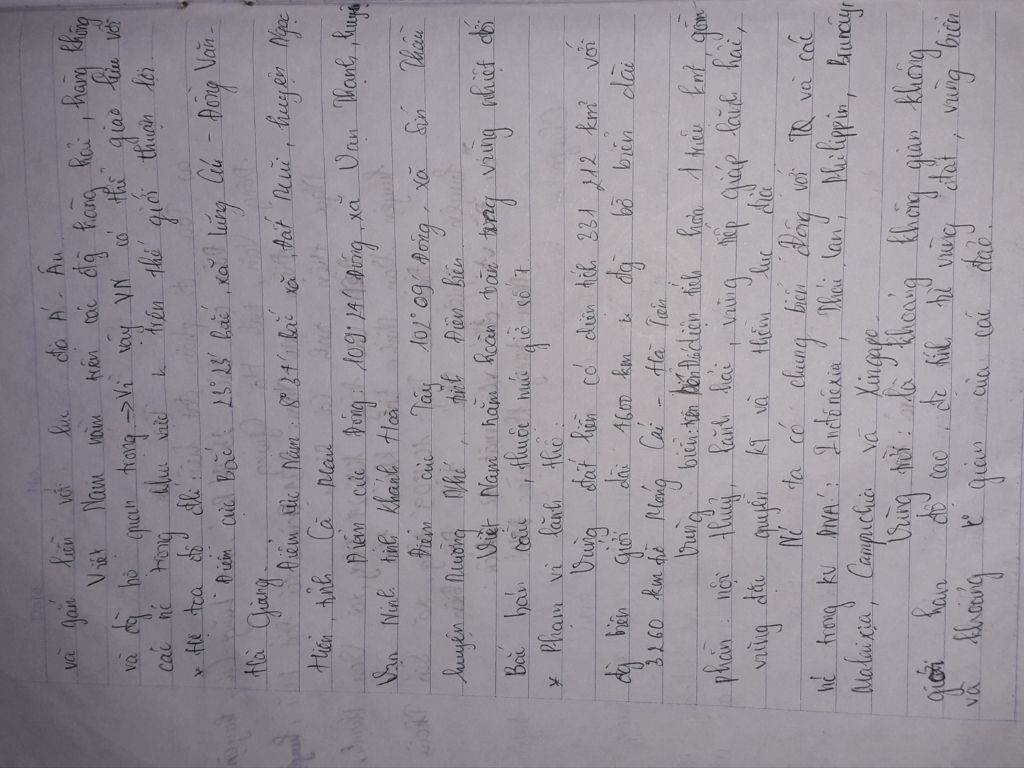 và gắn liền với lục địa Á - Âu.
Việt Nam nằm trên các đg hàng hải, hàng không
và đg bộ quan trọng -> Vì vậy VN có thể giao lưu với
các nc trong khu vực & trên thế giới thuận lợi.
* Hệ tọa độ địa lí:
Điểm cực Bắc 23°23' Bắc, xã Lũng Cú - Đồng Văn-
Hà Giang.
Điểm cực Nam: 8°34' Bắc xã Đất Mũi, huyện Ngọc
Hiển, tỉnh Cà Mau
Điểm cực Đông 109°24' Đông, xã Vạn Thạnh, huyện
Vạn Ninh tỉnh Khánh Hoà
Điểm cực Tây 102°09' Đông, xã Sín Thầu
huyện Mường Nhé, tỉnh Điện Biên
Việt Nam nằm hoàn toàn trong vùng nhiệt đới
Bán cầu Bắc, thuộc múi giờ số 7
* Phạm vi lãnh thổ:
Vùng đất liền có diện tích 331 212 km² với
đg biên giới dài 4600 km & đg bờ biển dài
3260 km từ Móng Cái - Hà Tiên
Vùng biển có diện tích hơn 1 triệu km² gồm
phần: nội thủy, lãnh hải, vùng tiếp giáp lãnh hải,
vùng đặc quyền kt và thềm lục địa
Nc ta có chung biển Đông với TQ và các
nc trong kv ĐNÁ: Inđônêxia, Thái Lan, Philippin, Bruney,
Malaixia, Campuchia và Xingapo.
Vùng trời: là khoảng không gian không
giới hạn độ cao, đc tính từ vùng đất, vùng biển
và khoảng k gian của các đảo.